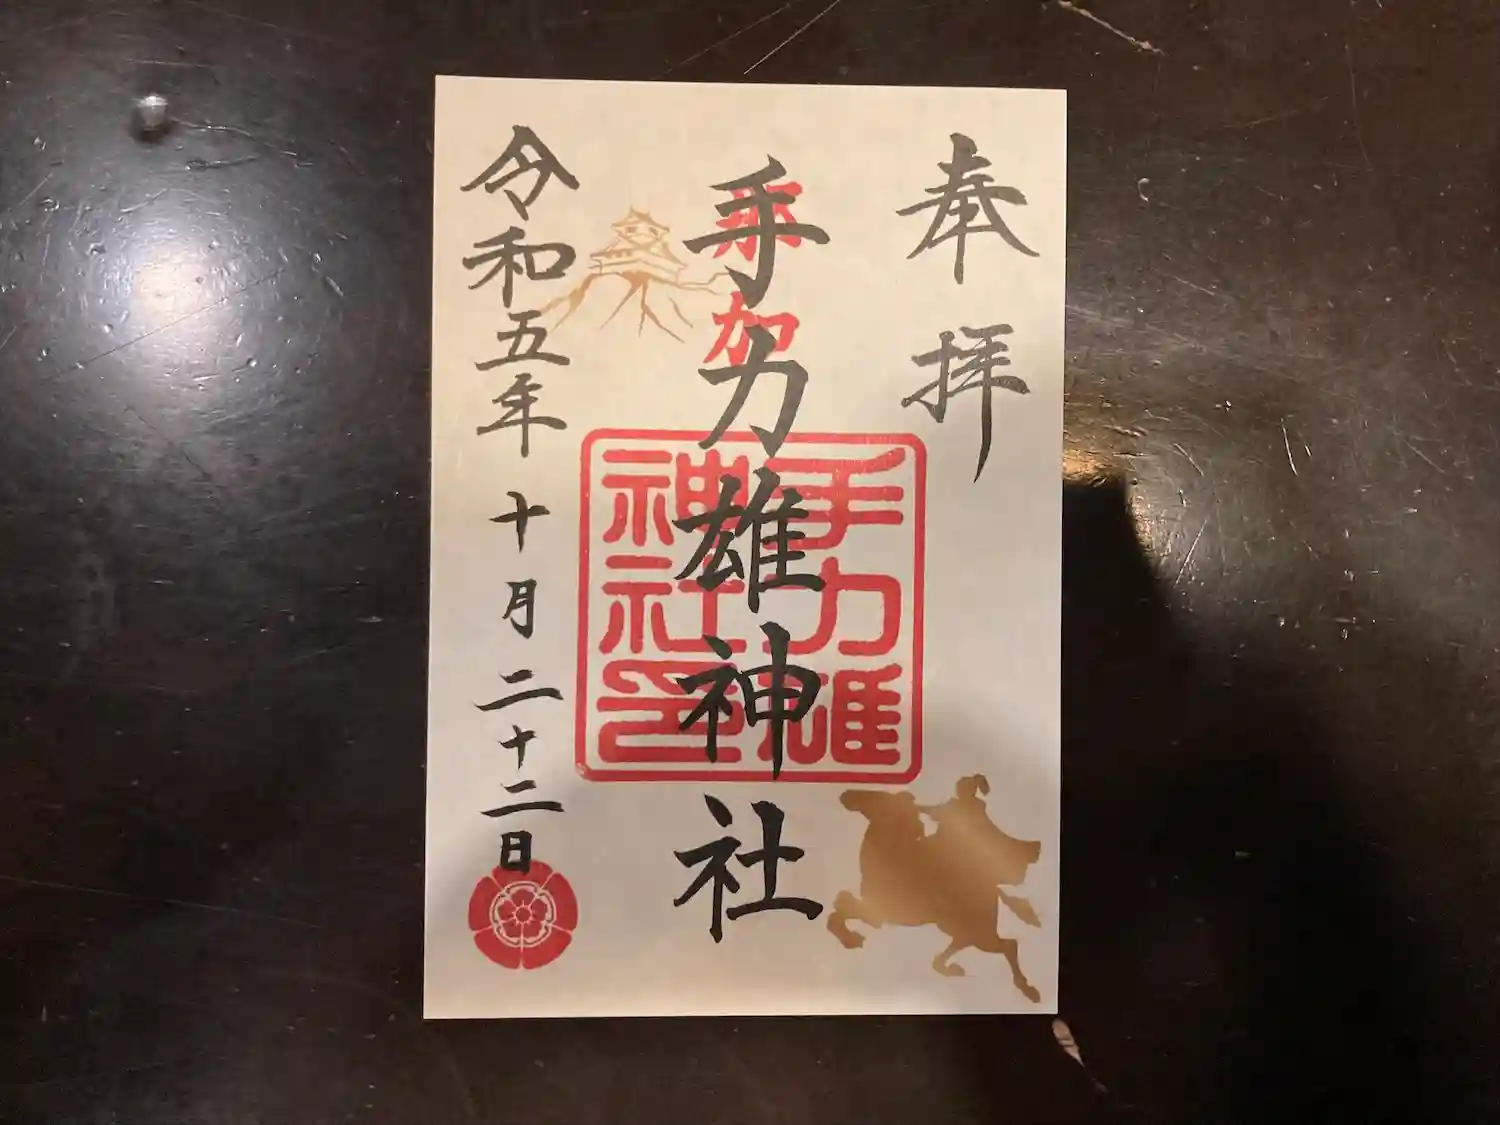 奉拝
那加
手力雄神社
手力雄
神社印
令和五年十月二十二日